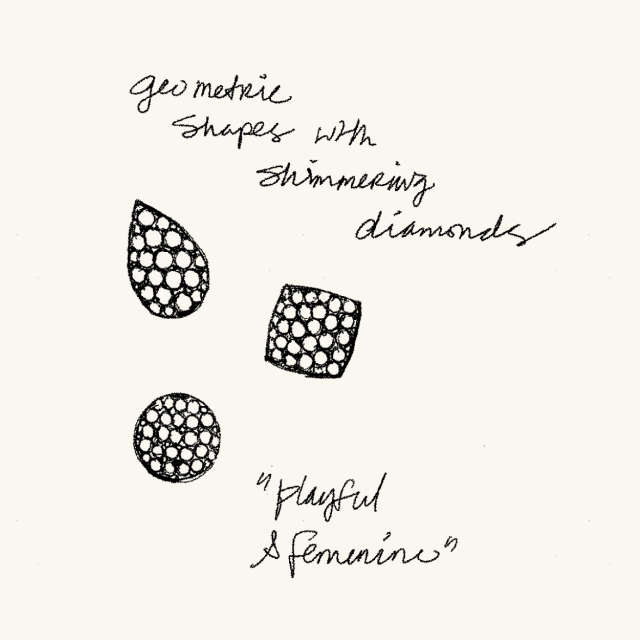 geometric
shapes with
shimmering
diamonds
"playful
& femenine"